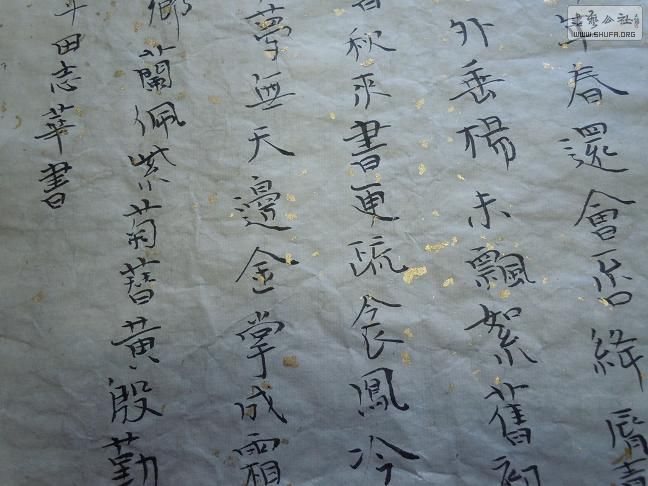 年春還會否絳唇青
外垂楊未飄絮舊初
書秋來書更疏衾鳳冷
夢無天邊金掌成霜
鄉蘭佩紫菊簪黃殷勤
田志華書
書藝公社
WWW.SHUFA.ORG